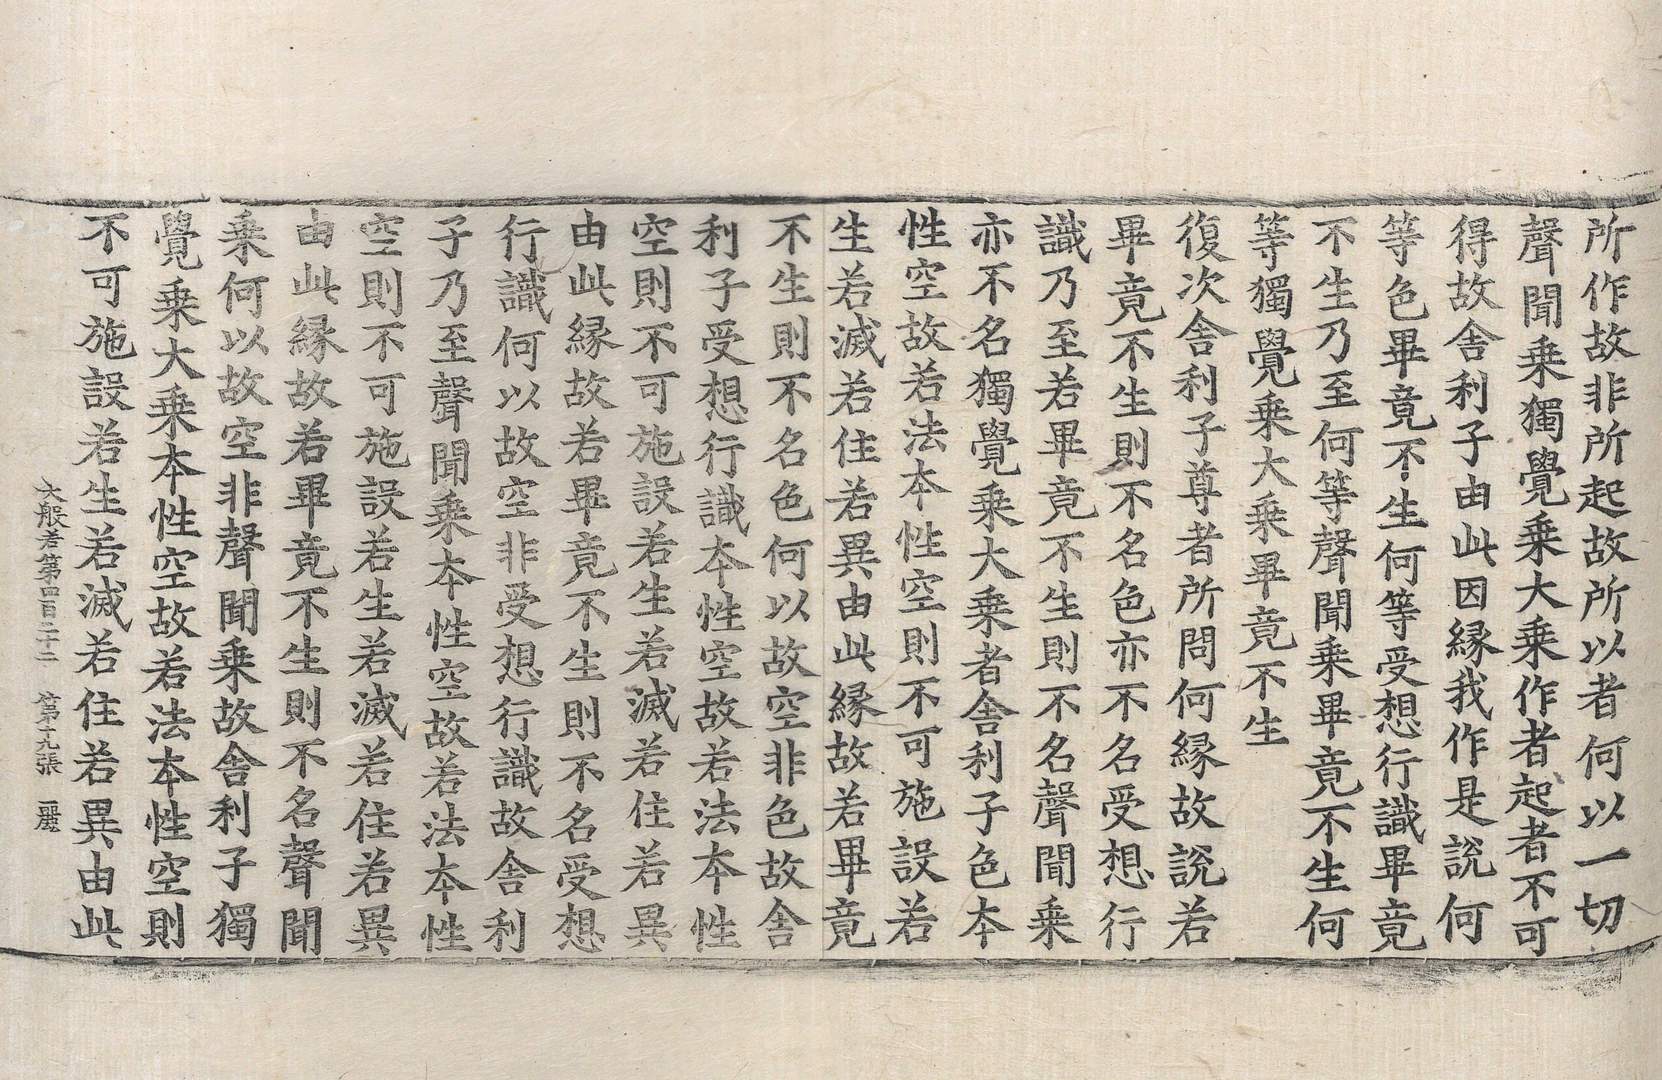 所作故非所起故所以者何以一切
聲聞乘獨覺乘大乘作者起者不可
得故舍利子由此因緣我作是說何
等色畢竟不生何等受想行識畢竟
不生乃至何等聲聞乘畢竟不生何
等獨覺乘大乘畢竟不生
復次舍利子尊者所問何緣故說若
畢竟不生則不名色亦不名受想行
識乃至若畢竟不生則不名聲聞乘
亦不名獨覺乘大乘者舍利子色本
性空故若法本性空則不可施設若
生若滅若住若異由此緣故若畢竟
不生則不名色何以故空非色故舍
利子受想行識本性空故若法本性
空則不可施設若生若滅若住若異
由此緣故若畢竟不生則不名受想
行識何以故空非受想行識故舍利
子乃至聲聞乘本性空故若法本性
空則不可施設若生若滅若住若異
由此緣故若畢竟不生則不名聲聞
乘何以故空非聲聞乘故舍利子獨
覺乘大乘本性空故若法本性空則
不可施設若生若滅若住若異由此
大般若第四百二十二 第十九張 麗